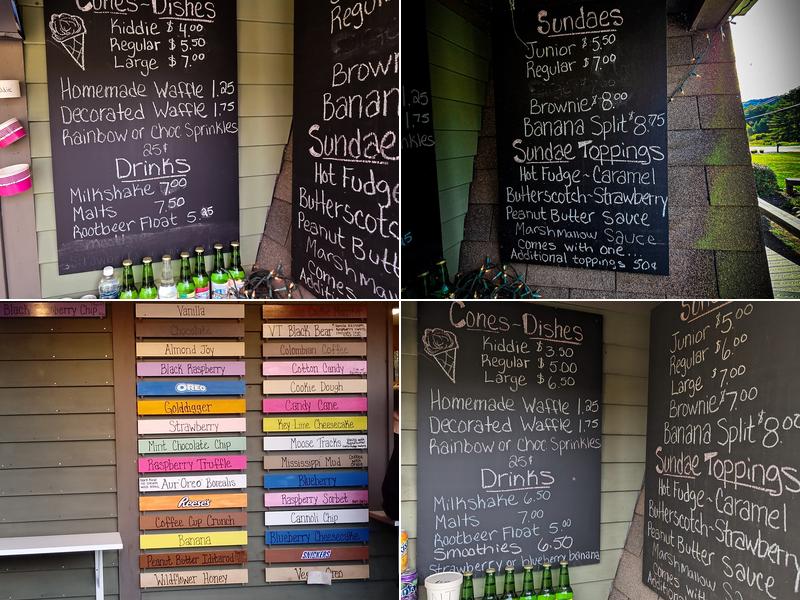 Cones-Dishes
Kiddie $4.00
Regular $5.50
Large $7.00
Homemade Waffle 1.25
Decorated Waffle 1.75
Rainbow or Choc Sprinkles
25¢
Drinks
Milkshake 7.00
Malts 7.50
Rootbeer Float 5.25
Regul
Brown
Banan
Sundae
Hot Fudg
Butterscotc
Peanut Butt
Marshmal
comes
Addit
Sundaes
Junior $5.50
Regular $7.00
Brownie $8.00
Banana Split $8.75
Sundae Toppings
Hot Fudge-Caramel
Butterscotch-Strawberry
Peanut Butter Sauce
Marshmallow Sauce
comes with one...
Additional toppings 50¢
.25
1.75
nkles
Black Raspberry Chip
Vanilla
Chocolate
Almond Joy
Black Raspberry
OREO
Golddigger
Strawberry
Mint Chocolate Chip
Raspberry Truffle
Aur Oreo Borealis
Reese's
Coffee Cup Crunch
Banana
Peanut Butter Iditarod
Wildflower Honey
VT Black Bear
Colombian Coffee
Cotton Candy
Cookie Dough
Candy Cane
Key Lime Cheesecake
Moose Tracks
Mississippi Mud
Blueberry
Raspberry Sorbet
Cannoli Chip
Blueberry Cheesecake
SNICKERS
Oreo
Cones-Dishes
Kiddie $3.50
Regular $5.00
Large $6.50
Homemade Waffle 1.25
Decorated Waffle 1.75
Rainbow or Choc Sprinkles
25¢
Drinks
Milkshake 6.50
Malts 7.00
Rootbeer Float 5.00
Smoothies 6.50
strawberry or blueberry banana
Sun
Junior $5.00
Regular $6.00
Large $7.00
Brownie $7.00
Banana Split $8.00
Sundae Toppings
Hot Fudge-Caramel
Butterscotch-Strawberry
Peanut Butter Sauce
Marshmallow Sauce
Comes with
Additional